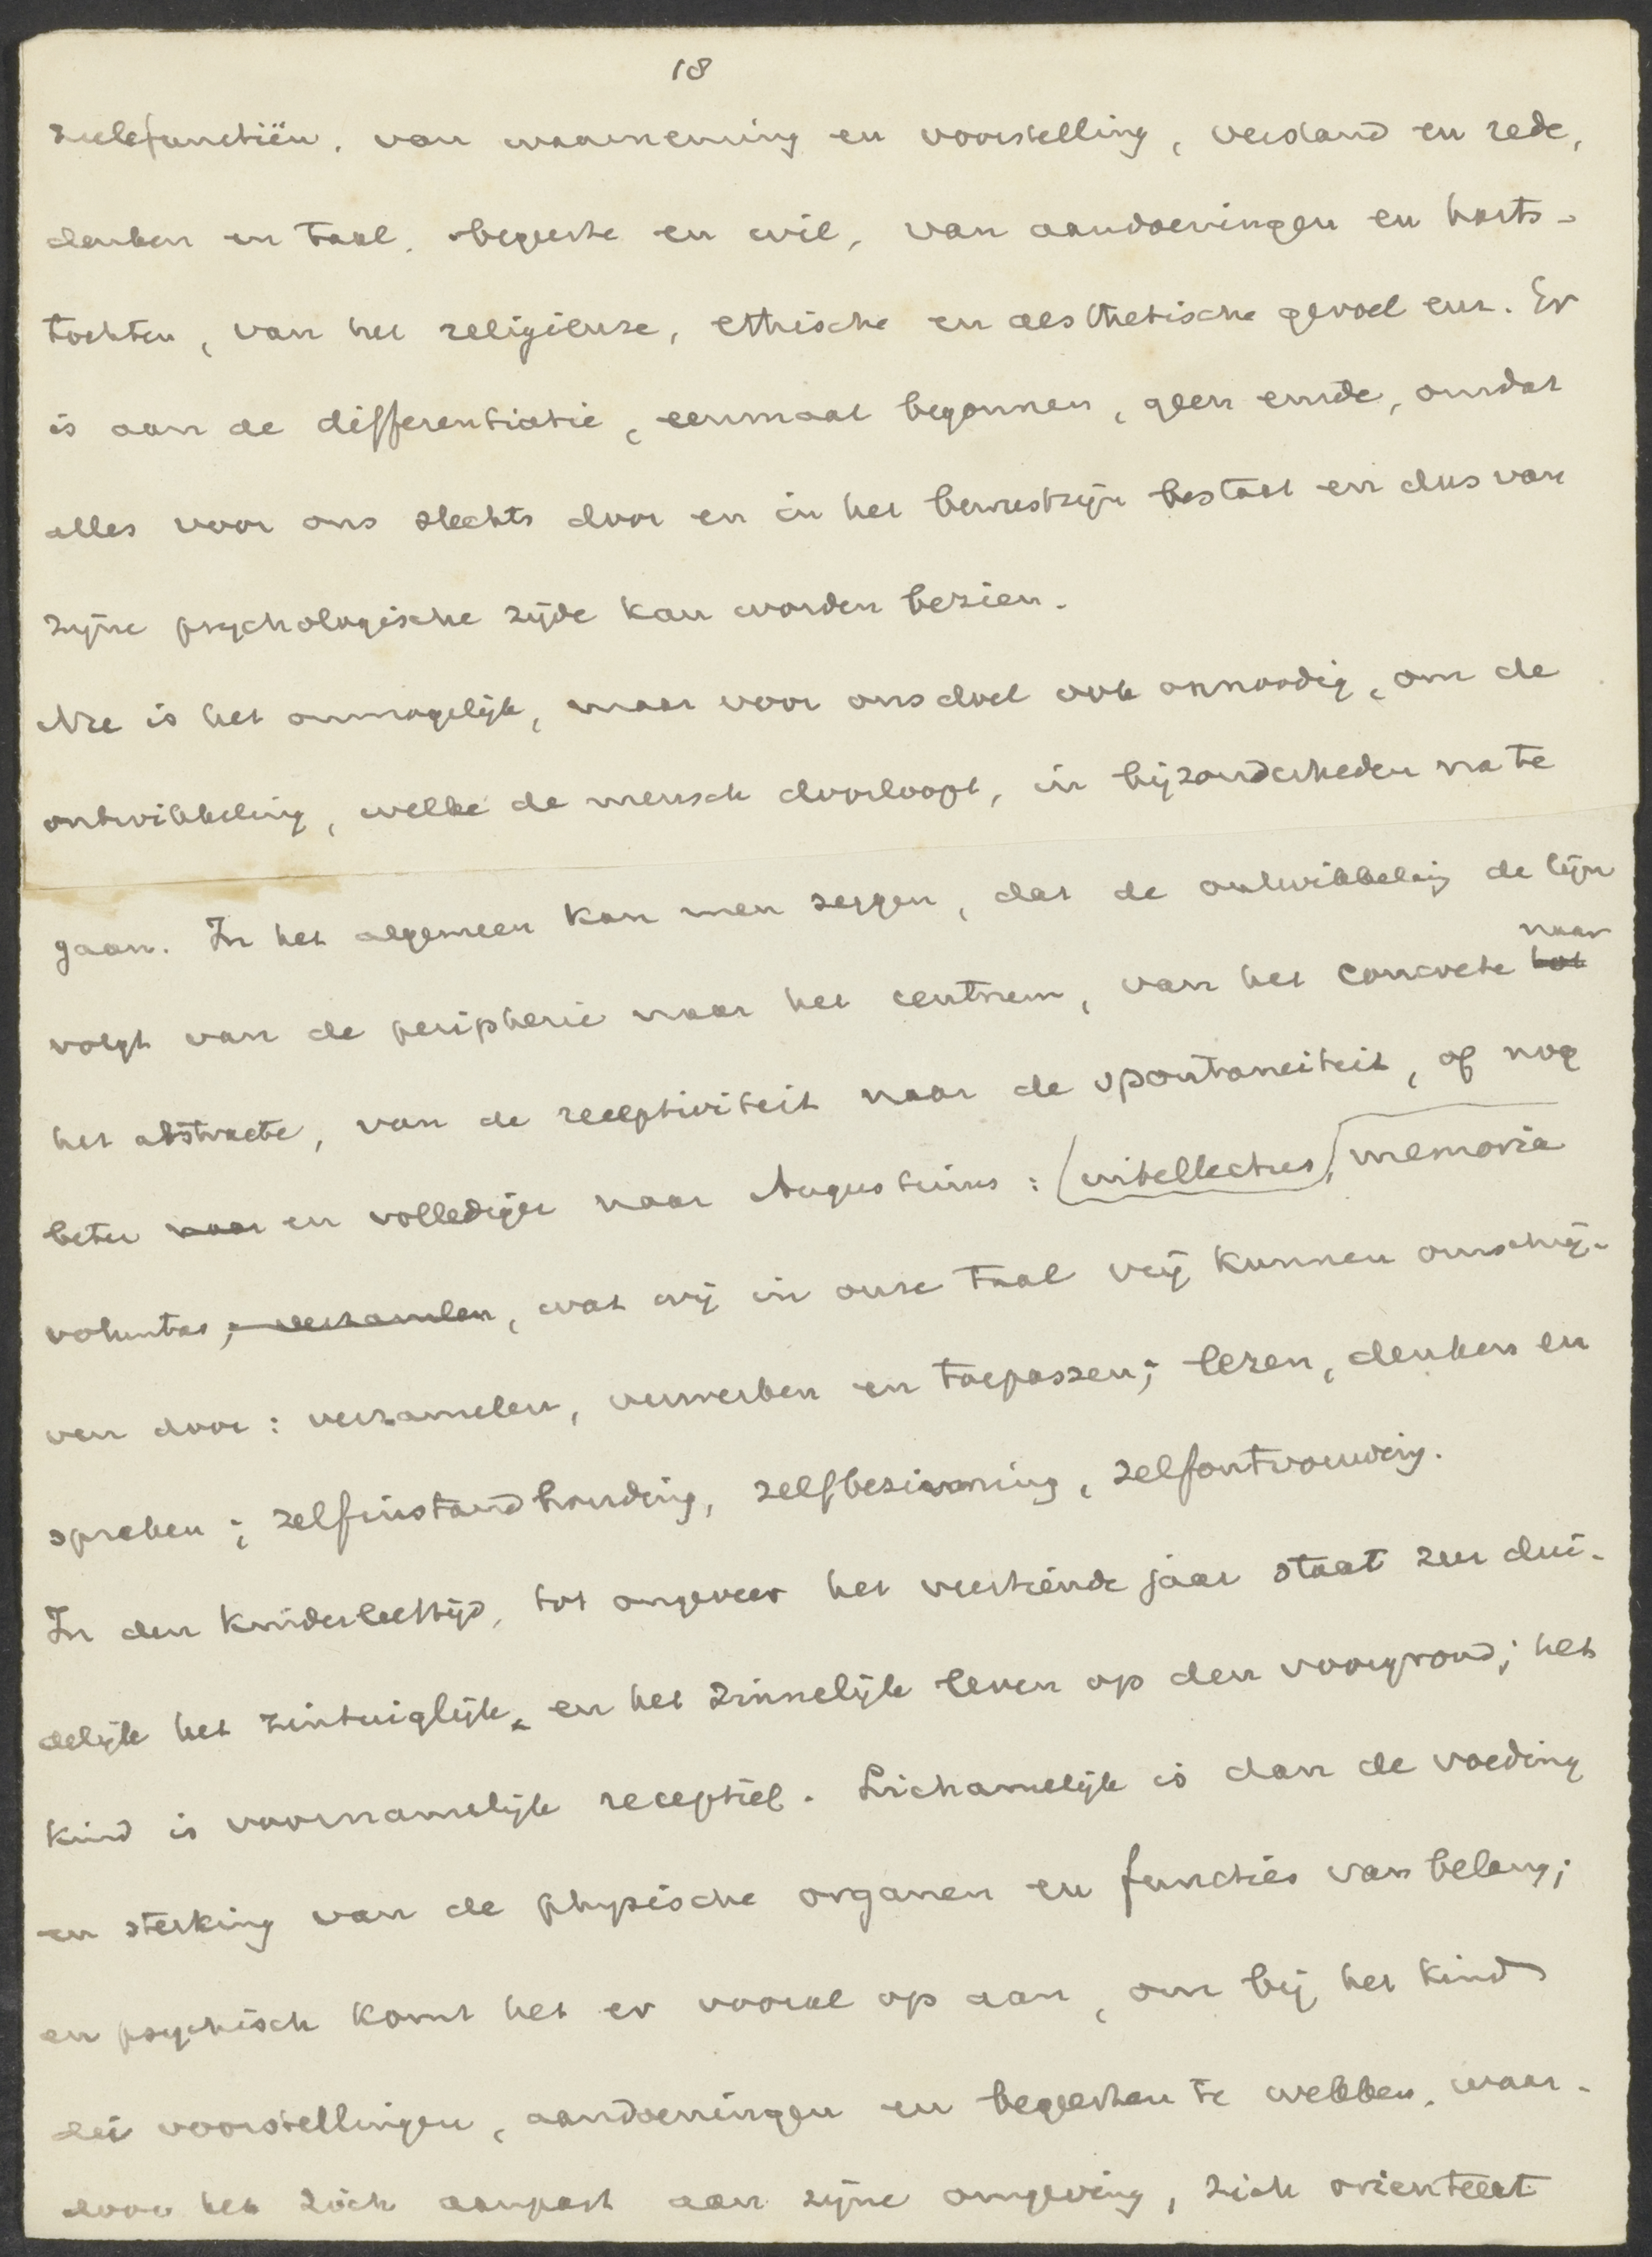 18
zielefunctiën, van waarneming en voorstelling, verstand en rede,
denken en taal, begeerte en wil, van aandoeningen en harts-
tochten, van het religieuze, ethische en aesthetische gevoel enz. Er
is aan de differentiatie, eenmaal begonnen, geen einde, omdat
alles voor ons slechts door en in het bewustzijn bestaat en dus van
zijne psychologische zijde kan worden bezien.
Nu is het onmogelijk, maar voor ons doel ook onnoodig, om de
ontwikkeling, welke de mensch doorloopt, in bijzonderheden na te
gaan. In het algemeen kan men zeggen, dat de ontwikkeling de lijn
volgt van de peripherie naar het centrum, van het concrete tot naar
het abstracte, van de receptiviteit naar de spontaneiteit, of nog
beter naar en vollediger naar Augustinus: intellectus, memoria
voluntas, verzamelen, wat wij in onze taal vrij kunnen omschrij-
ven door: verzamelen, verwerken en toepassen; lezen, denken en
spreken; zelfinstandhouding, zelfbezinning, zelfontvouwing.
In den kinderleeftijd, tot ongeveer het veertiende jaar staat zeer dui-
delijk het zintuiglijk, en het zinnelijk leven op den voorgrond; het
kind is voornamelijk receptief. Lichamelijk is dan de voeding
en sterking van de physische organen en functies van belang;
en psychisch komt het er vooral op aan, om bij het kind
die voorstellingen, aandoeningen en begeerten te wekken, waar-
door het zich aanpast aan zijne omgeving, zich orienteert